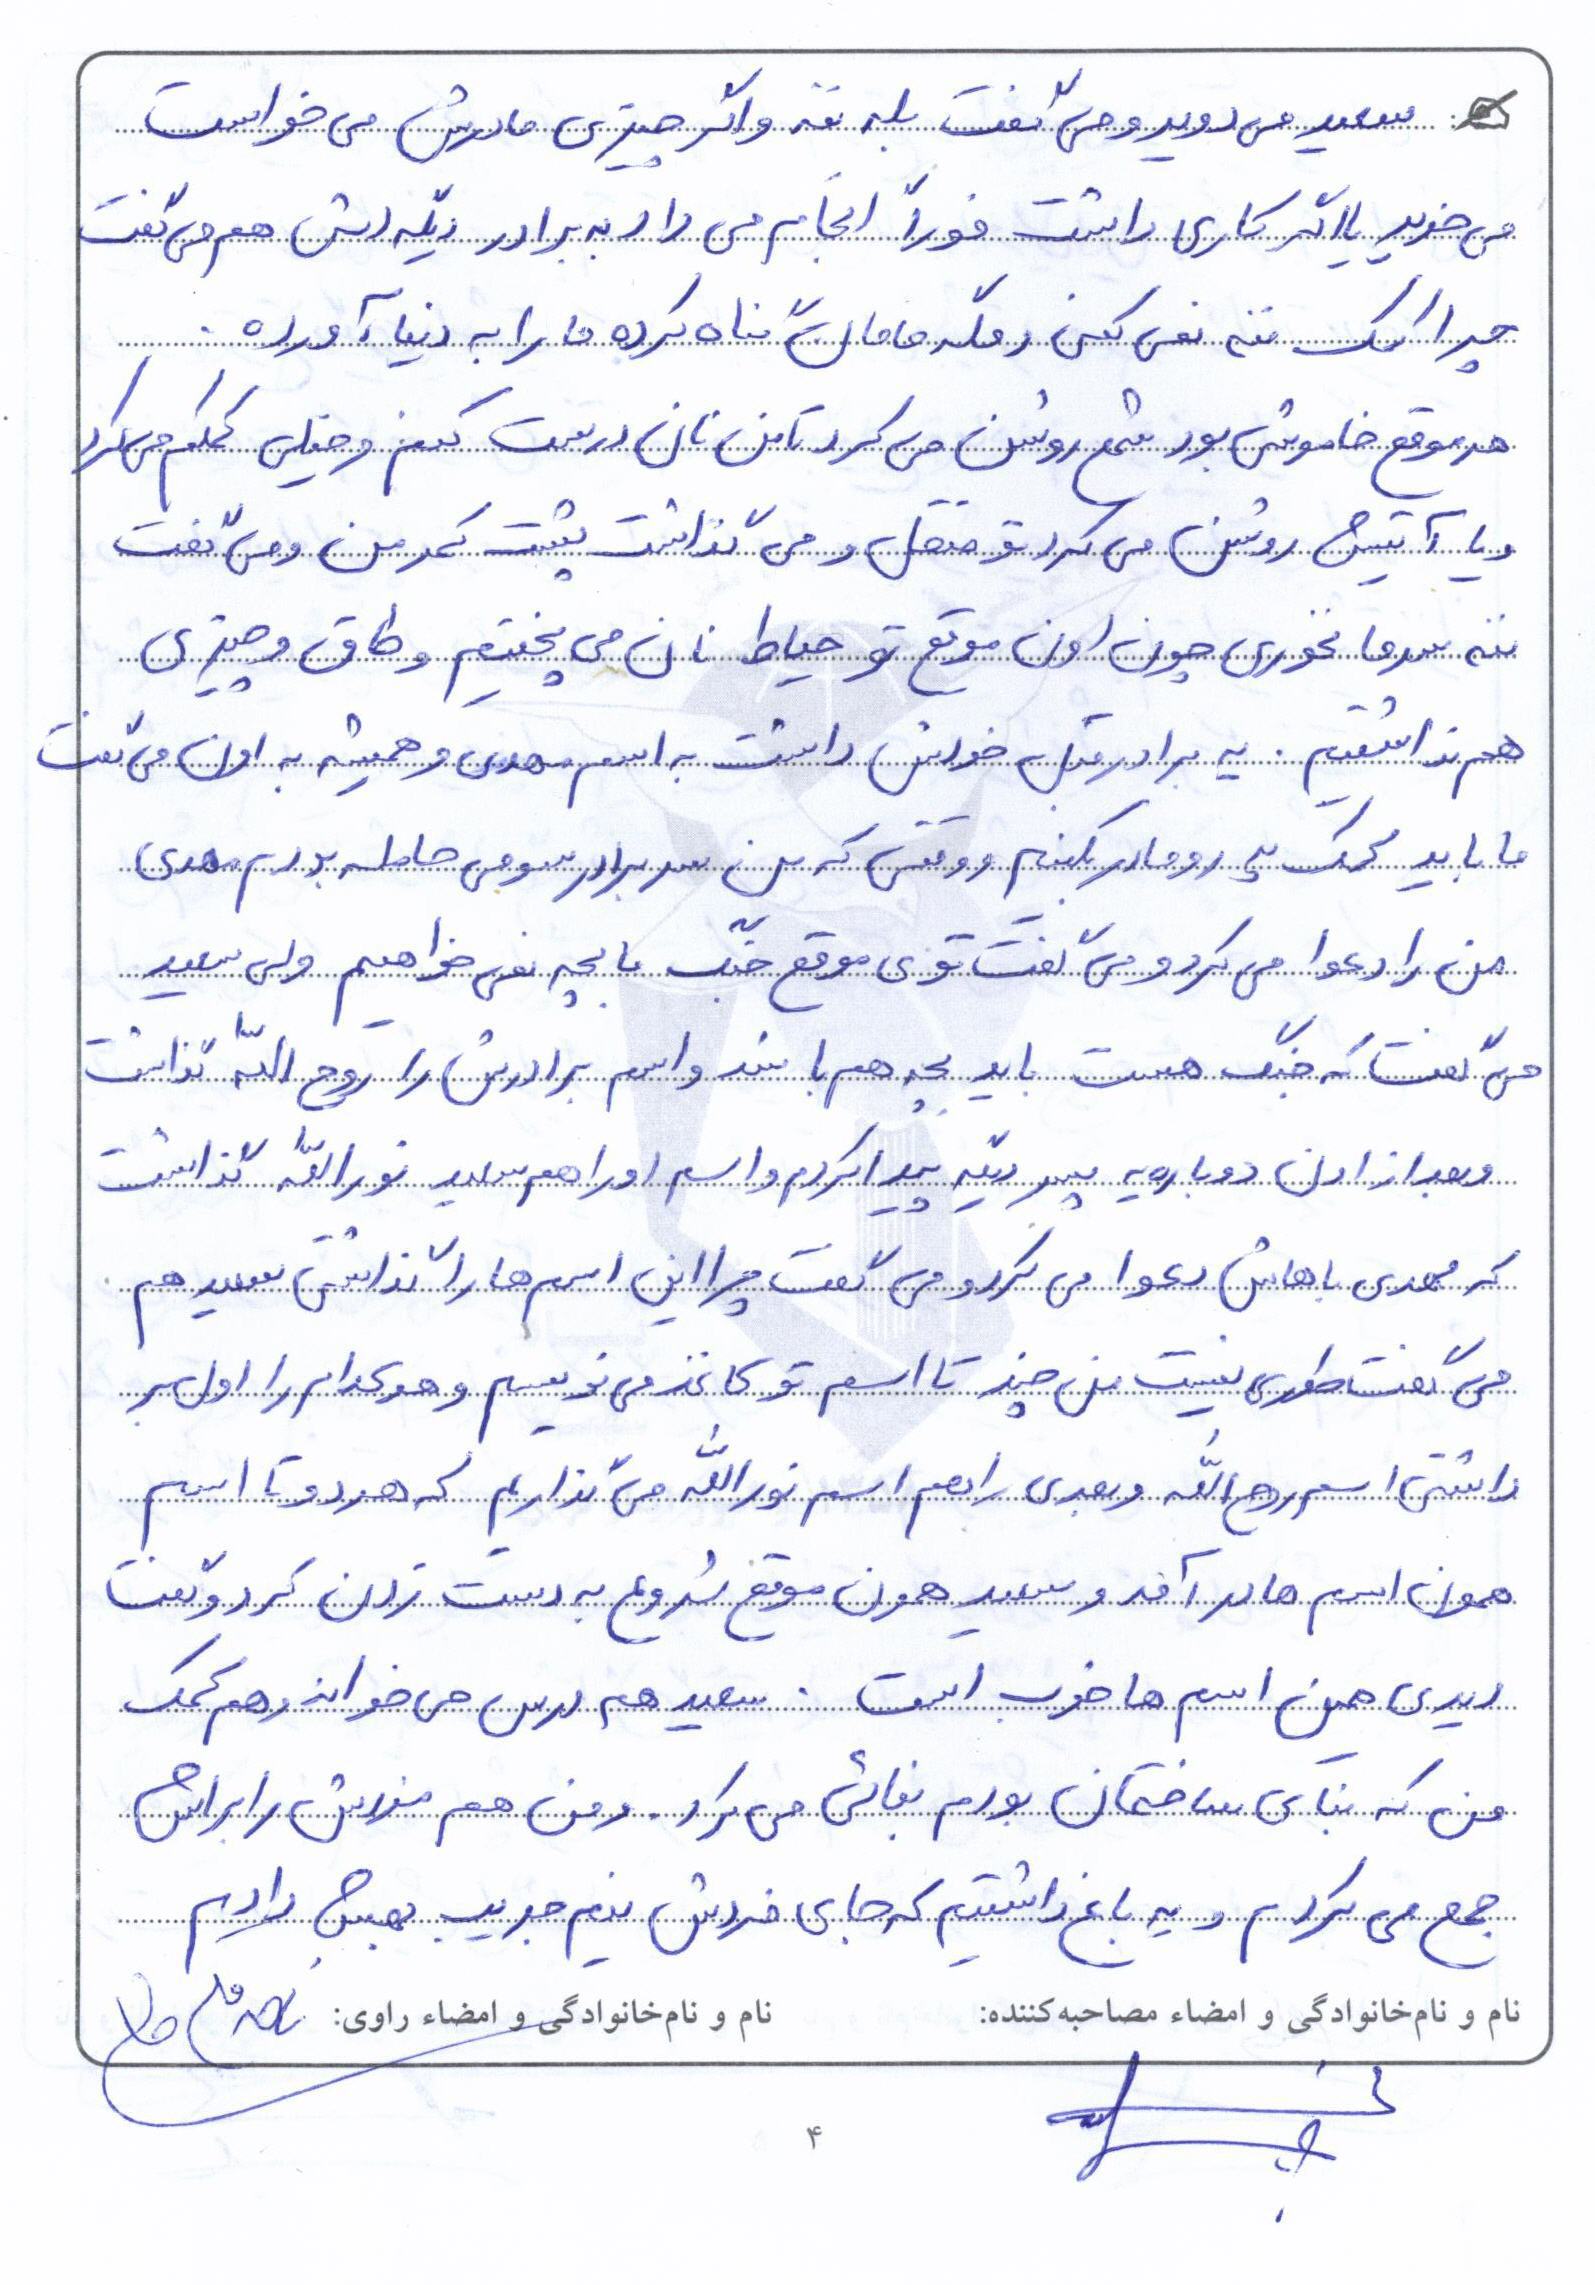 سعید می‌دوید و می‌گفت بله ننه و اگر چیزی مادرش می‌خواست
می‌خرید یا اگر کاری داشت فوراً انجام می‌داد به برادر دیگه‌اش هم می‌گفت
چرا کمک ننه نمی‌کنی و مگه مامان گناه کرده ما را به دنیا آورده .
هر موقع خاموشی بود شمع روشن می‌کرد تا من نان درست کنم و خیلی کمکم می‌کرد
و یا آتیش روشن می‌کرد تو منقل و می‌گذاشت پشت کمر من و می‌گفت
ننه سرما نخوری چون اون موقع تو حیاط نان می‌پختیم و طاق و چیزی
هم نداشتیم . یه برادر قبل خودش داشت به اسم مهدی و همیشه به اون می‌گفت
ما باید کمک پدر و مادر بکنیم و وقتی که من سر برادر سومی حامله بودم مهدی
من را دعوا می‌کرد و می‌گفت توی موقع جنگ ما بچه نمی‌خواهیم ولی سعید
می‌گفت که جنگ هست باید بچه هم باشد و اسم برادرش را روح الله گذاشت
و بعد از اون دوباره یه پسر دیگه پیدا کردم و اسم او را هم سعید نورالله گذاشت
که مهدی باهاش دعوا می‌کرد و می‌گفت چرا این اسم‌ها را گذاشتی سعید هم
می‌گفت طوری نیست من چند تا اسم تو کاغذ می‌نویسم و هر کدام را اول بر
داشتی اسم روح الله و بعدی را هم اسم نورالله می‌گذاریم که هر دو تا اسم
همون اسم‌ها در آمد و سعید همون موقع شروع به دست زدن کرد و گفت
دیدی همین اسم‌ها خوب است . سعید هم درس می‌خواند و هم کمک
من که بنای ساختمان بودم بنائی می‌کرد . و من هم مزدش را براش
جمع می‌کردم و یه باغ داشتیم که جای مزدش نیم جریب بهش دادیم
نام و نام‌خانوادگی و امضاء مصاحبه‌کننده: نام و نام‌خانوادگی و امضاء راوی:
۴